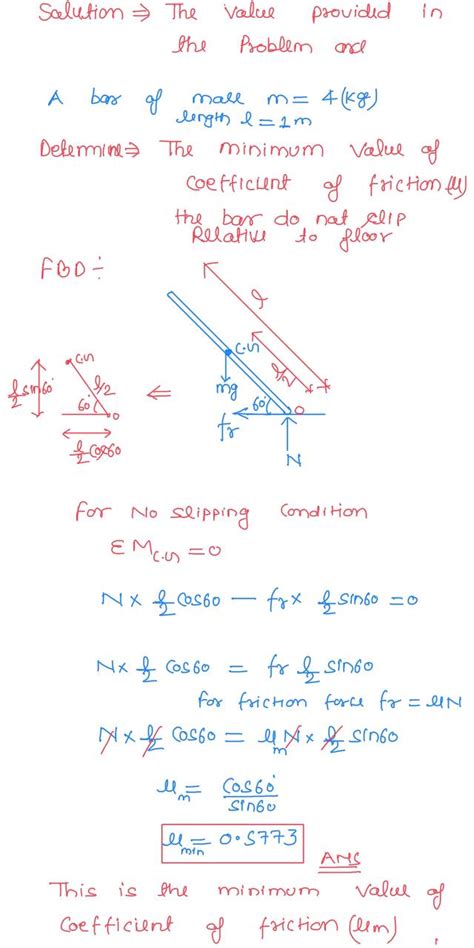 Solution ⇒ The value provided in
the Problem are
A bar of mass m = 4 (kg)
length l = 2 m
Determine ⇒ The minimum value of
coefficient of friction (μ)
the bar do not slip
Relative to floor
FBD ÷
l
C.G
l/2
mg
60°
O
fr
N
C.G
l/2 sin60°
l/2
60°
O
⇐
l/2 cos60
for No slipping condition
ΣM_C.G = 0
N × l/2 cos60 — fr × l/2 sin60 = 0
N × l/2 cos60 = fr l/2 sin60
for friction force fr = μN
N × l/2 cos60 = μ_m N × l/2 sin60
μ_m = cos60° / sin60
μ_min = 0.5773
ANS
This is the minimum value of
coefficient of friction (μm) .